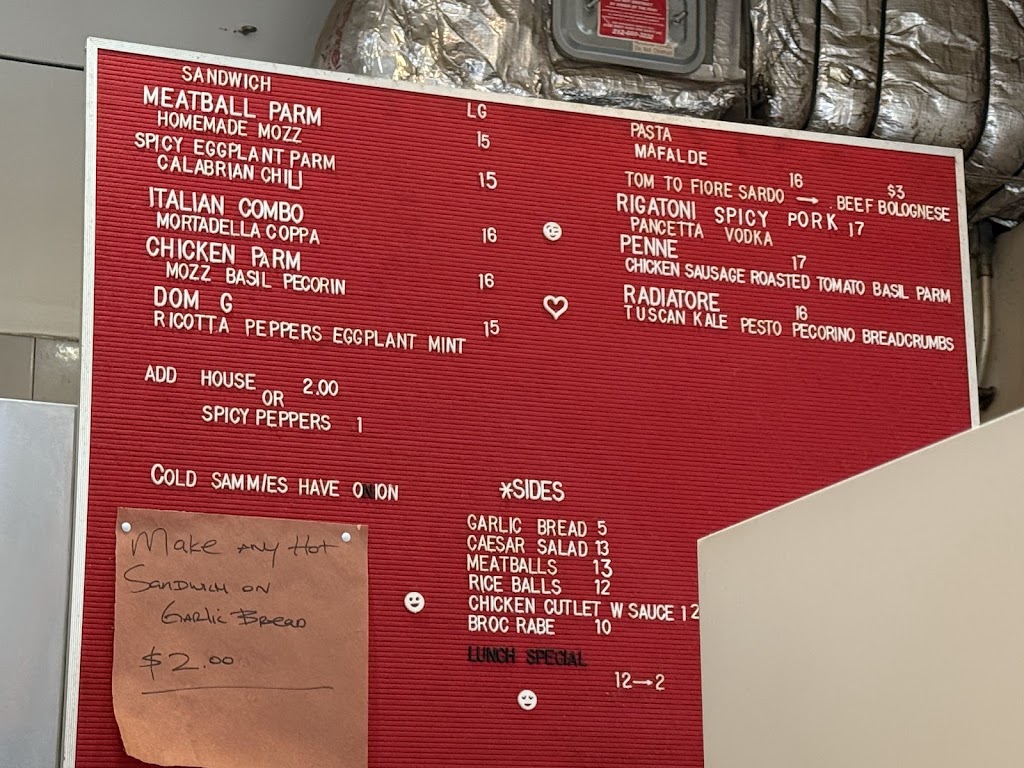 SANDWICH
LG
MEATBALL PARM
HOMEMADE MOZZ 15
SPICY EGGPLANT PARM
CALABRIAN CHILI 15
ITALIAN COMBO
MORTADELLA COPPA 16
CHICKEN PARM
MOZZ BASIL PECORIN 16
DOM G
RICOTTA PEPPERS EGGPLANT MINT 15
ADD HOUSE 2.00
OR
SPICY PEPPERS 1
COLD SAMMIES HAVE ONION
Make Any Hot
Sandwich on
Garlic Bread
$2.00
PASTA
MAFALDE
16 $3
TOM TO FIORE SARDO → BEEF BOLOGNESE
RIGATONI SPICY PORK 17
PANCETTA VODKA
PENNE 17
CHICKEN SAUSAGE ROASTED TOMATO BASIL PARM
RADIATORE 16
TUSCAN KALE PESTO PECORINO BREADCRUMBS
*SIDES
GARLIC BREAD 5
CAESAR SALAD 13
MEATBALLS 13
RICE BALLS 12
CHICKEN CUTLET W SAUCE 12
BROC RABE 10
LUNCH SPECIAL
12→2